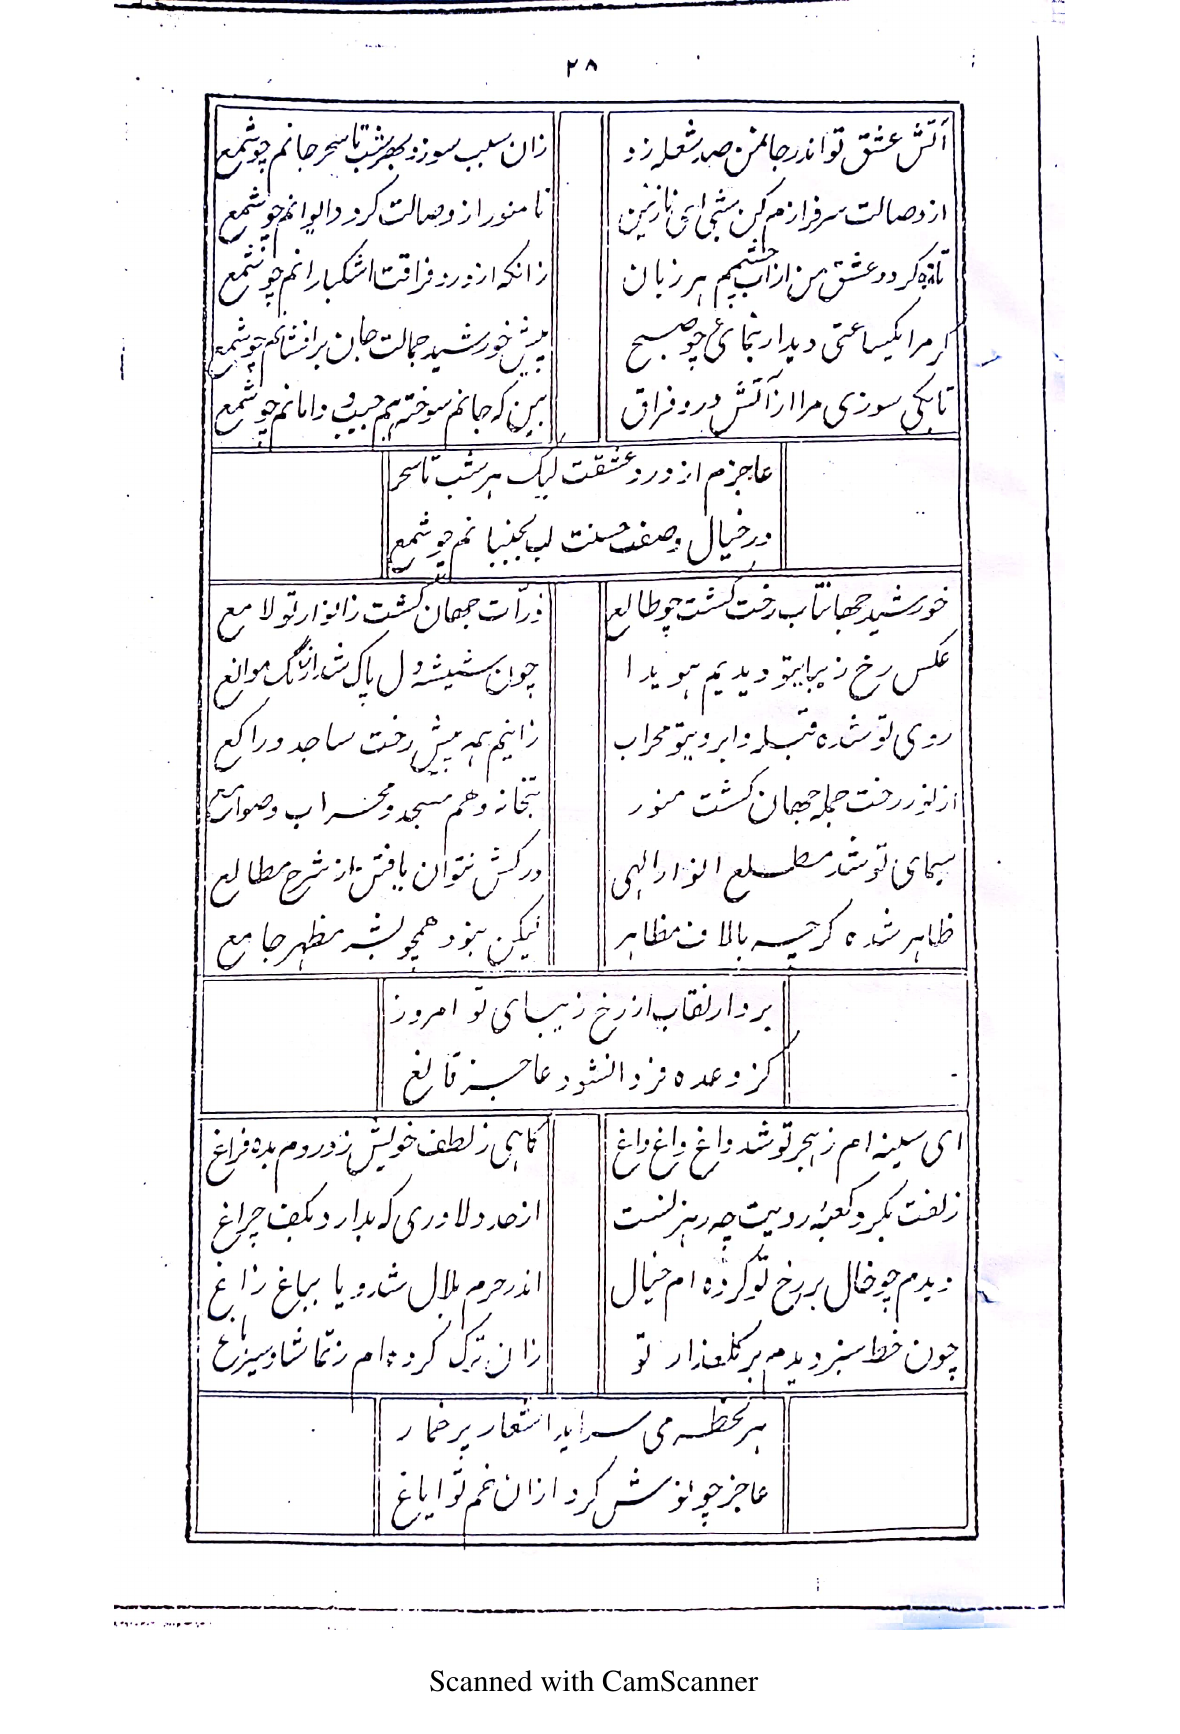 ۲۸
آتش عشق تو اندر جان من صد شعله زد
زان سبب سوزد بهر شب تا سحر جانم چو شمع
از وصالت سرفرازم کن شبی ای نازنین
تا منور از وصالت کردد ایوانم چو شمع
تازه کردد عشق من از آب چشمم هر زبان
زانکه از درد فراقت اشکبارانم چو شمع
کر مرا یکساعتی دیدار بنمای چو صبح
پیش خورشید جمالت جان برافشانم چو شمع
تا بکی سوزی مرا از آتش درد فراق
بین که جانم سوخته هم جیب و دامانم چو شمع
عاجزم از درد عشقت لیک هر شب تا سحر
در خیال وصف حسنت لب بجنبانم چو شمع
خورشید جهانتاب رخت کشت چو طالع
ذرات جهان کشت ز انوار تو لامع
عکس رخ زیبایتو دیدیم هویدا
چون شیشه دل پاک شد از زنگ موانع
روی تو شده قبله و ابرویتو محراب
زاینم همه پیش رخت ساجد و راکع
از نور رخت جمله جهان کشت منور
بتخانه و هم مسجد و محراب و صوامع
سیمای تو شد مطلع انوار الهی
درکش نتوان یافتن از شرح مطالع
ظاهر شده کرچه بالاف مظاهر
لیکن نبود همچو بشر مظهر جامع
بردار نقاب از رخ زیبای تو امروز
کز وعده فردا نشود عاجز قانع
ای سینه ام ز هجر تو شد داغ داغ داغ
کاهی ز لطف خویش ز دردم بده فراغ
زلفت بکرد کعبه رویت چه رهزنست
از حد دلاوری که بدارد بکف چراغ
دیدم چو خال بر رخ تو کرده ام خیال
اندر حرم بلال شد و یا بباغ زاغ
چون خط سبز دیدم بر کلعذار تو
زان ترک کرده ام ز تماشا و سیر باغ
هر لحظه می سراید اشعار پر خمار
عاجز چو نوش کرد ازان خم تو ایاغ
Scanned with CamScanner